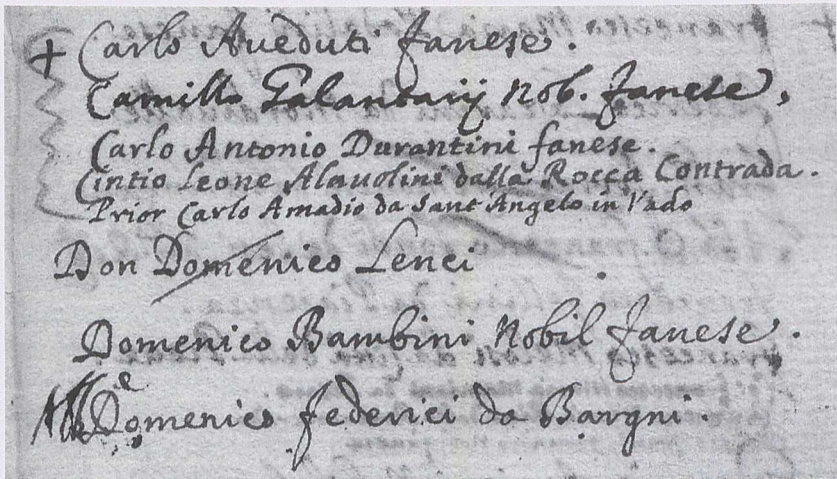 + Carlo Aueduti fanese.
Camillo Galantarij Nob. fanese,
Carlo Antonio Durantini fanese.
Cintio Leone Alauolini dalla Rocca Contrada.
Prior Carlo Amadio da Sant Angelo in Vado
Don Domenico Lenci
Domenico Bambini Nobil fanese.
Domenico federici da Bargni.